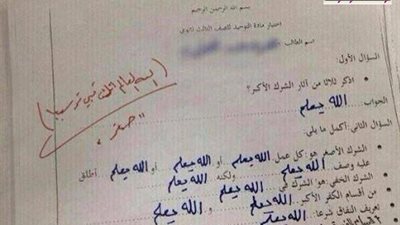 بسم الله الرحمن الرحيم
اختبار مادة التوحيد للصف الثالث ثانوي
اسم الطالب
السؤال الأول:
اذكر ثلاثا من آثار الشرك الأكبر؟
الجواب: الله يعلم
السؤال الثاني: أكمل ما يلي:
الشرك الأصغر هو: كل عمل الله يعلم أو الله يعلم أو الله يعلم أطلق
عليه وصف الله يعلم ولكنه الله يعلم
الشرك الخفي هو الشرك في الله يعلم
من أقسام الكفر الأكبر الله يعلم و الله يعلم
تعريف النفاق شرعا: الله يعلم
(السنة القادمة
"صفر"